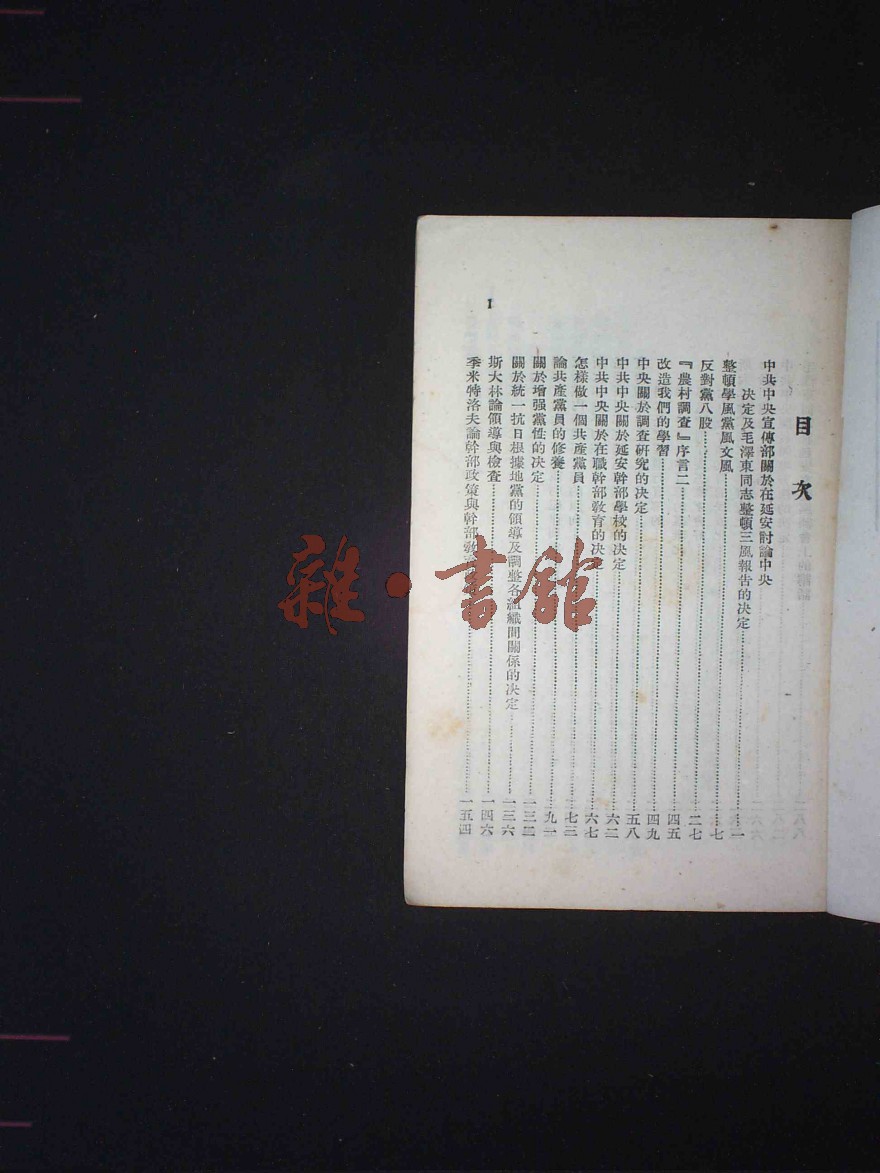 目次
中共中央宣傳部關於在延安討論中央
決定及毛澤東同志整頓三風報告的决定……一
整頓學風黨風文風……七
反對黨八股……二七
『農村調查』序言二……四五
改造我們的學習……四九
中央關於調查研究的决定……五八
中共中央關於延安幹部學校的决定……六二
中共中央關於在職幹部教育的决定……六七
怎樣做一個共產黨員……七三
論共產黨員的修養……九一
關於增强黨性的决定……一三二
關於統一抗日根據地黨的領導及調整各組織間關係的决定……一三六
斯大林論領導與檢查……一四六
季米特洛夫論幹部政策與幹部教……一五四
1
雜·書館